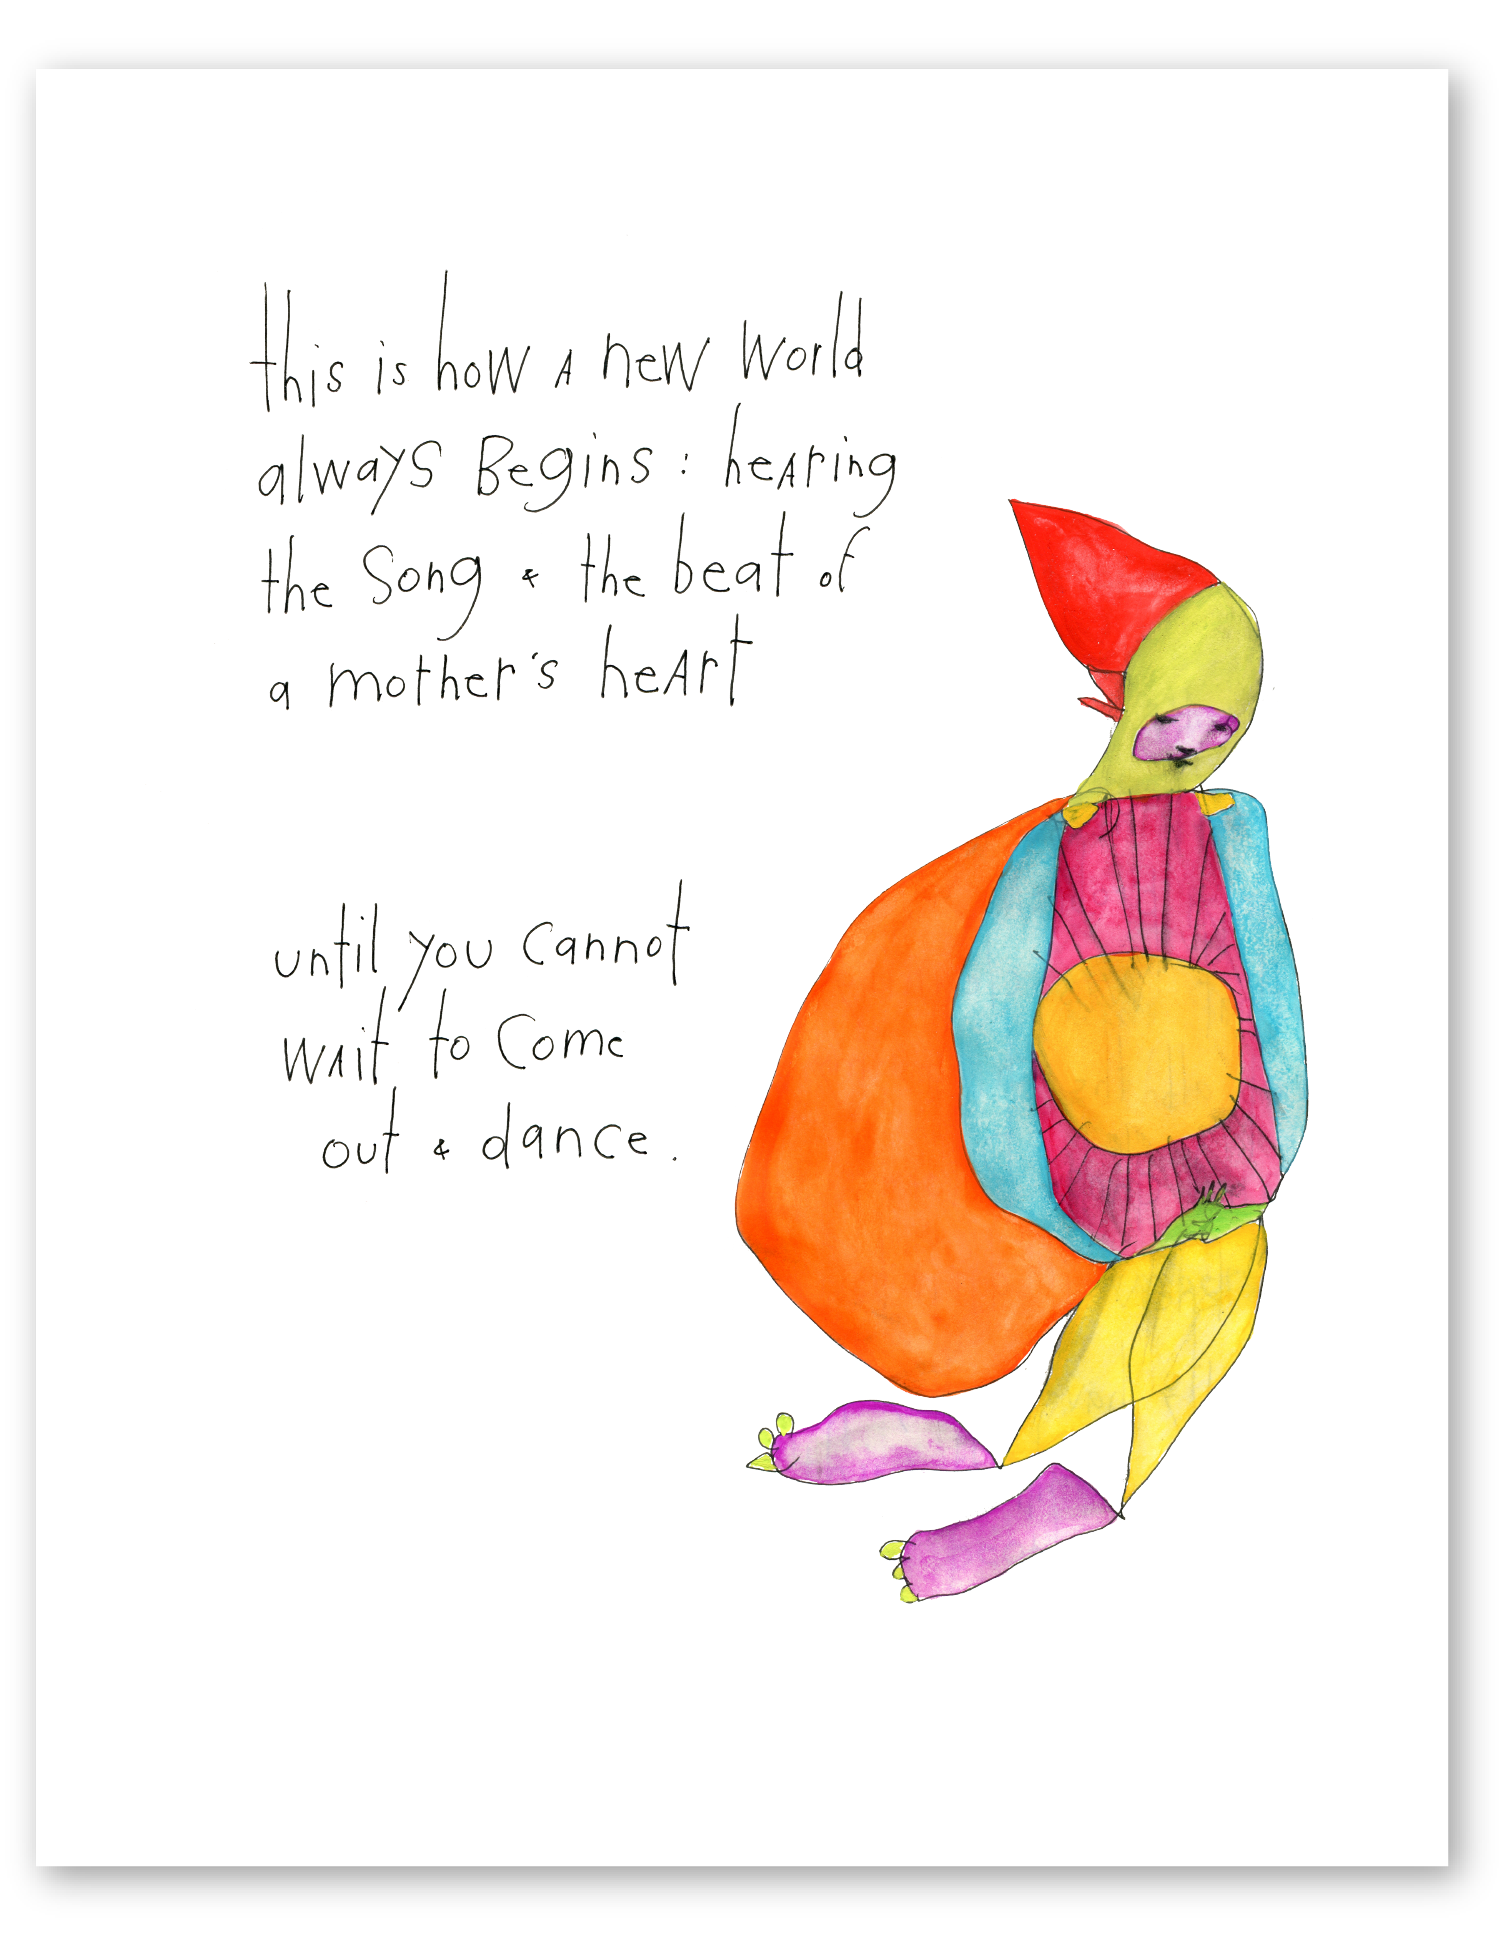 this is how A new World
always Begins : heAring
the Song & the beat of
a mother's heArt
until you Cannot
WAit to Come
out & dance.